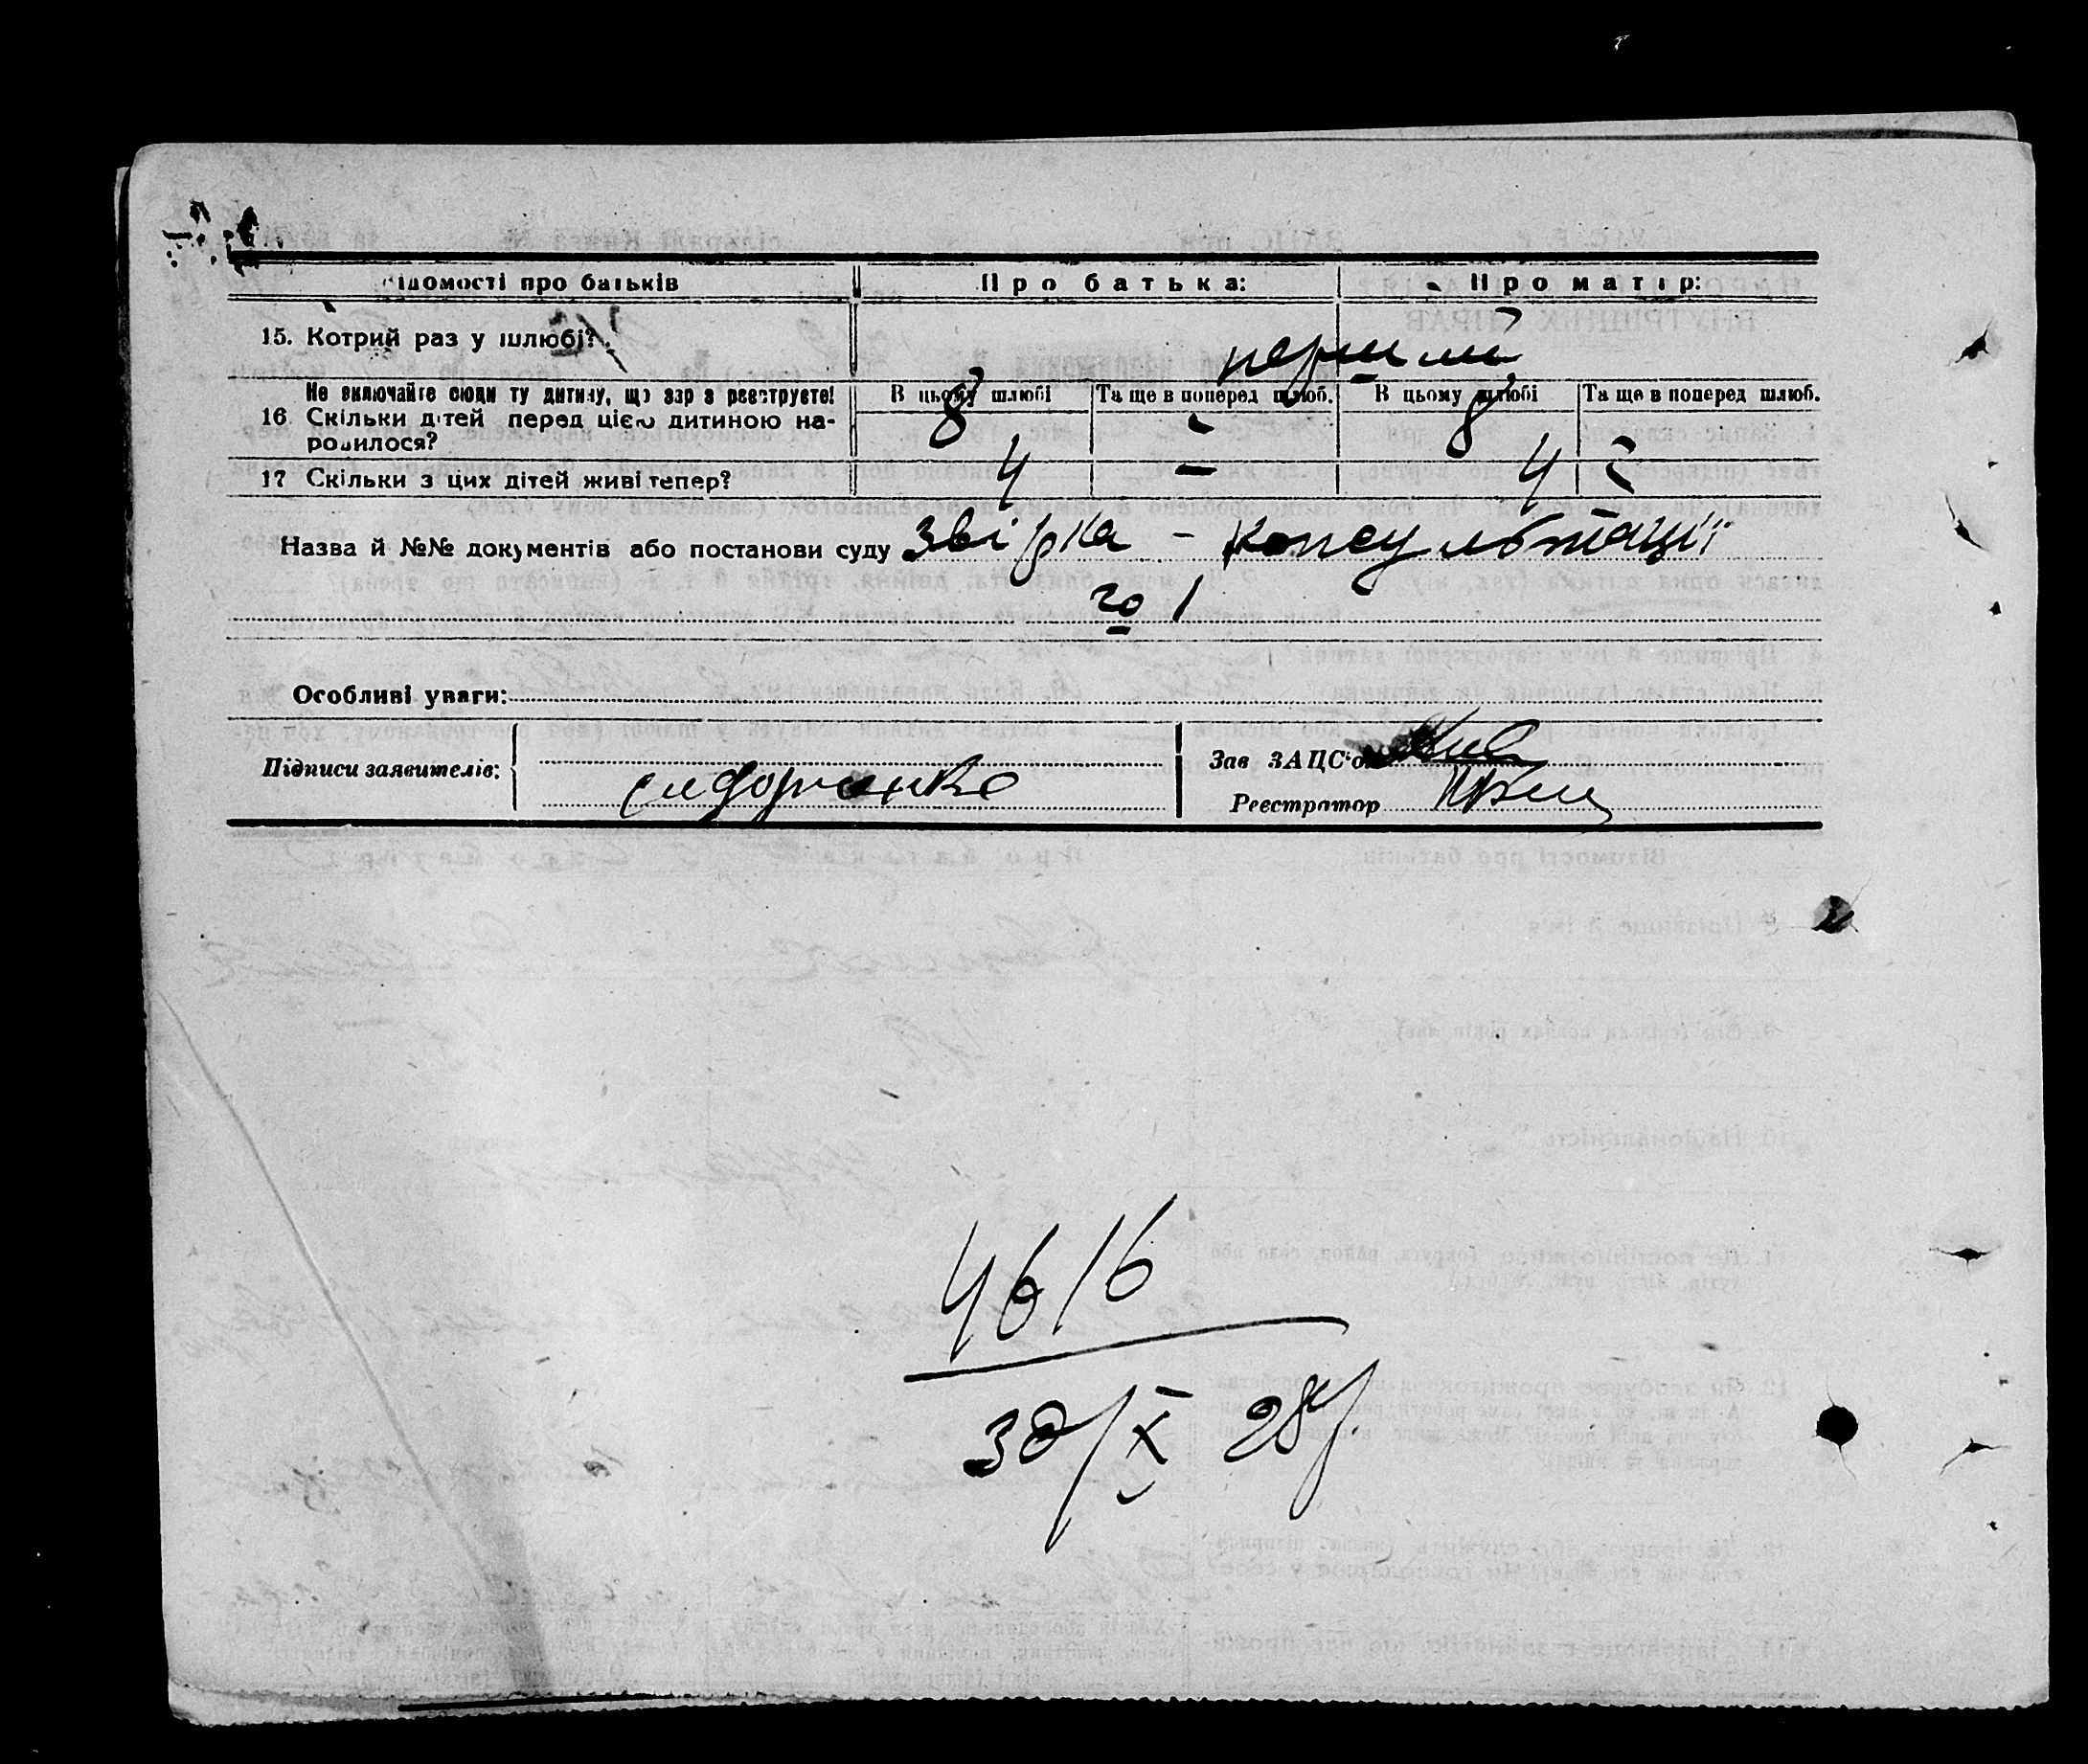 Відомості про батьків Про батька: Про матір:
15. Котрий раз у шлюбі? перший
Не включайте сюди ту дитину, що зараз реєструєте! В цьому шлюбі Та ще в поперед шлюб. В цьому шлюбі Та ще в поперед шлюб.
16 Скільки дітей перед цією дитиною на- 8 - 8 -
родилося?
17 Скільки з цих дітей живі тепер? 4 - 4 -
Назва й №№ документів або постанови суду звірка - консультації
го 1
Особливі уваги:
Підписи заявителів: Сидорченко
Зав ЗАЦС'ом
Реєстратор
4616
30/IX 28р.